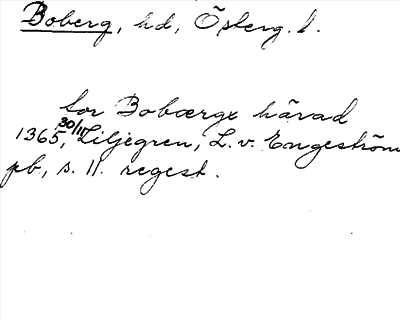 Boberg, hd, Österg. l.
for Bobærgx hãrad
30/11
1365, Liljegren, L. v. Engeström
pb, s. 11. regest.